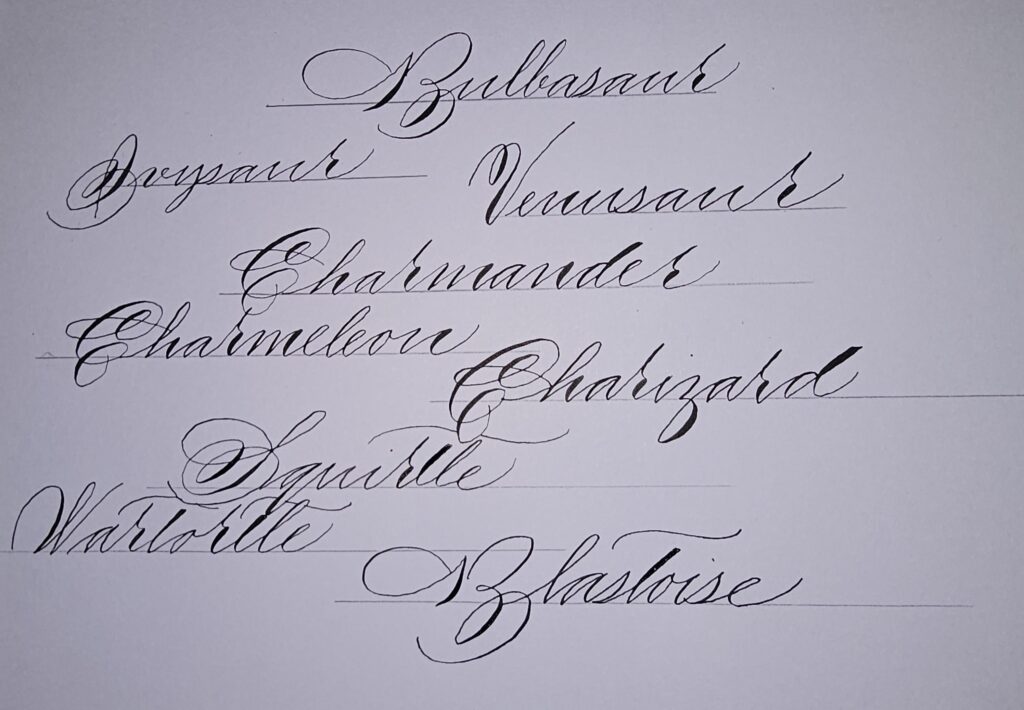 Bulbasaur
Ivysaur Venusaur
Charmander
Charmeleon
Charizard
Squirtle
Wartortle
Blastoise